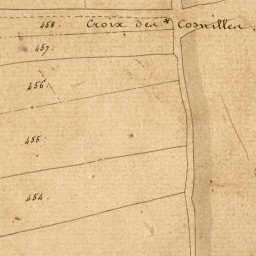 458. Croix des
457.
456.
455.
454.